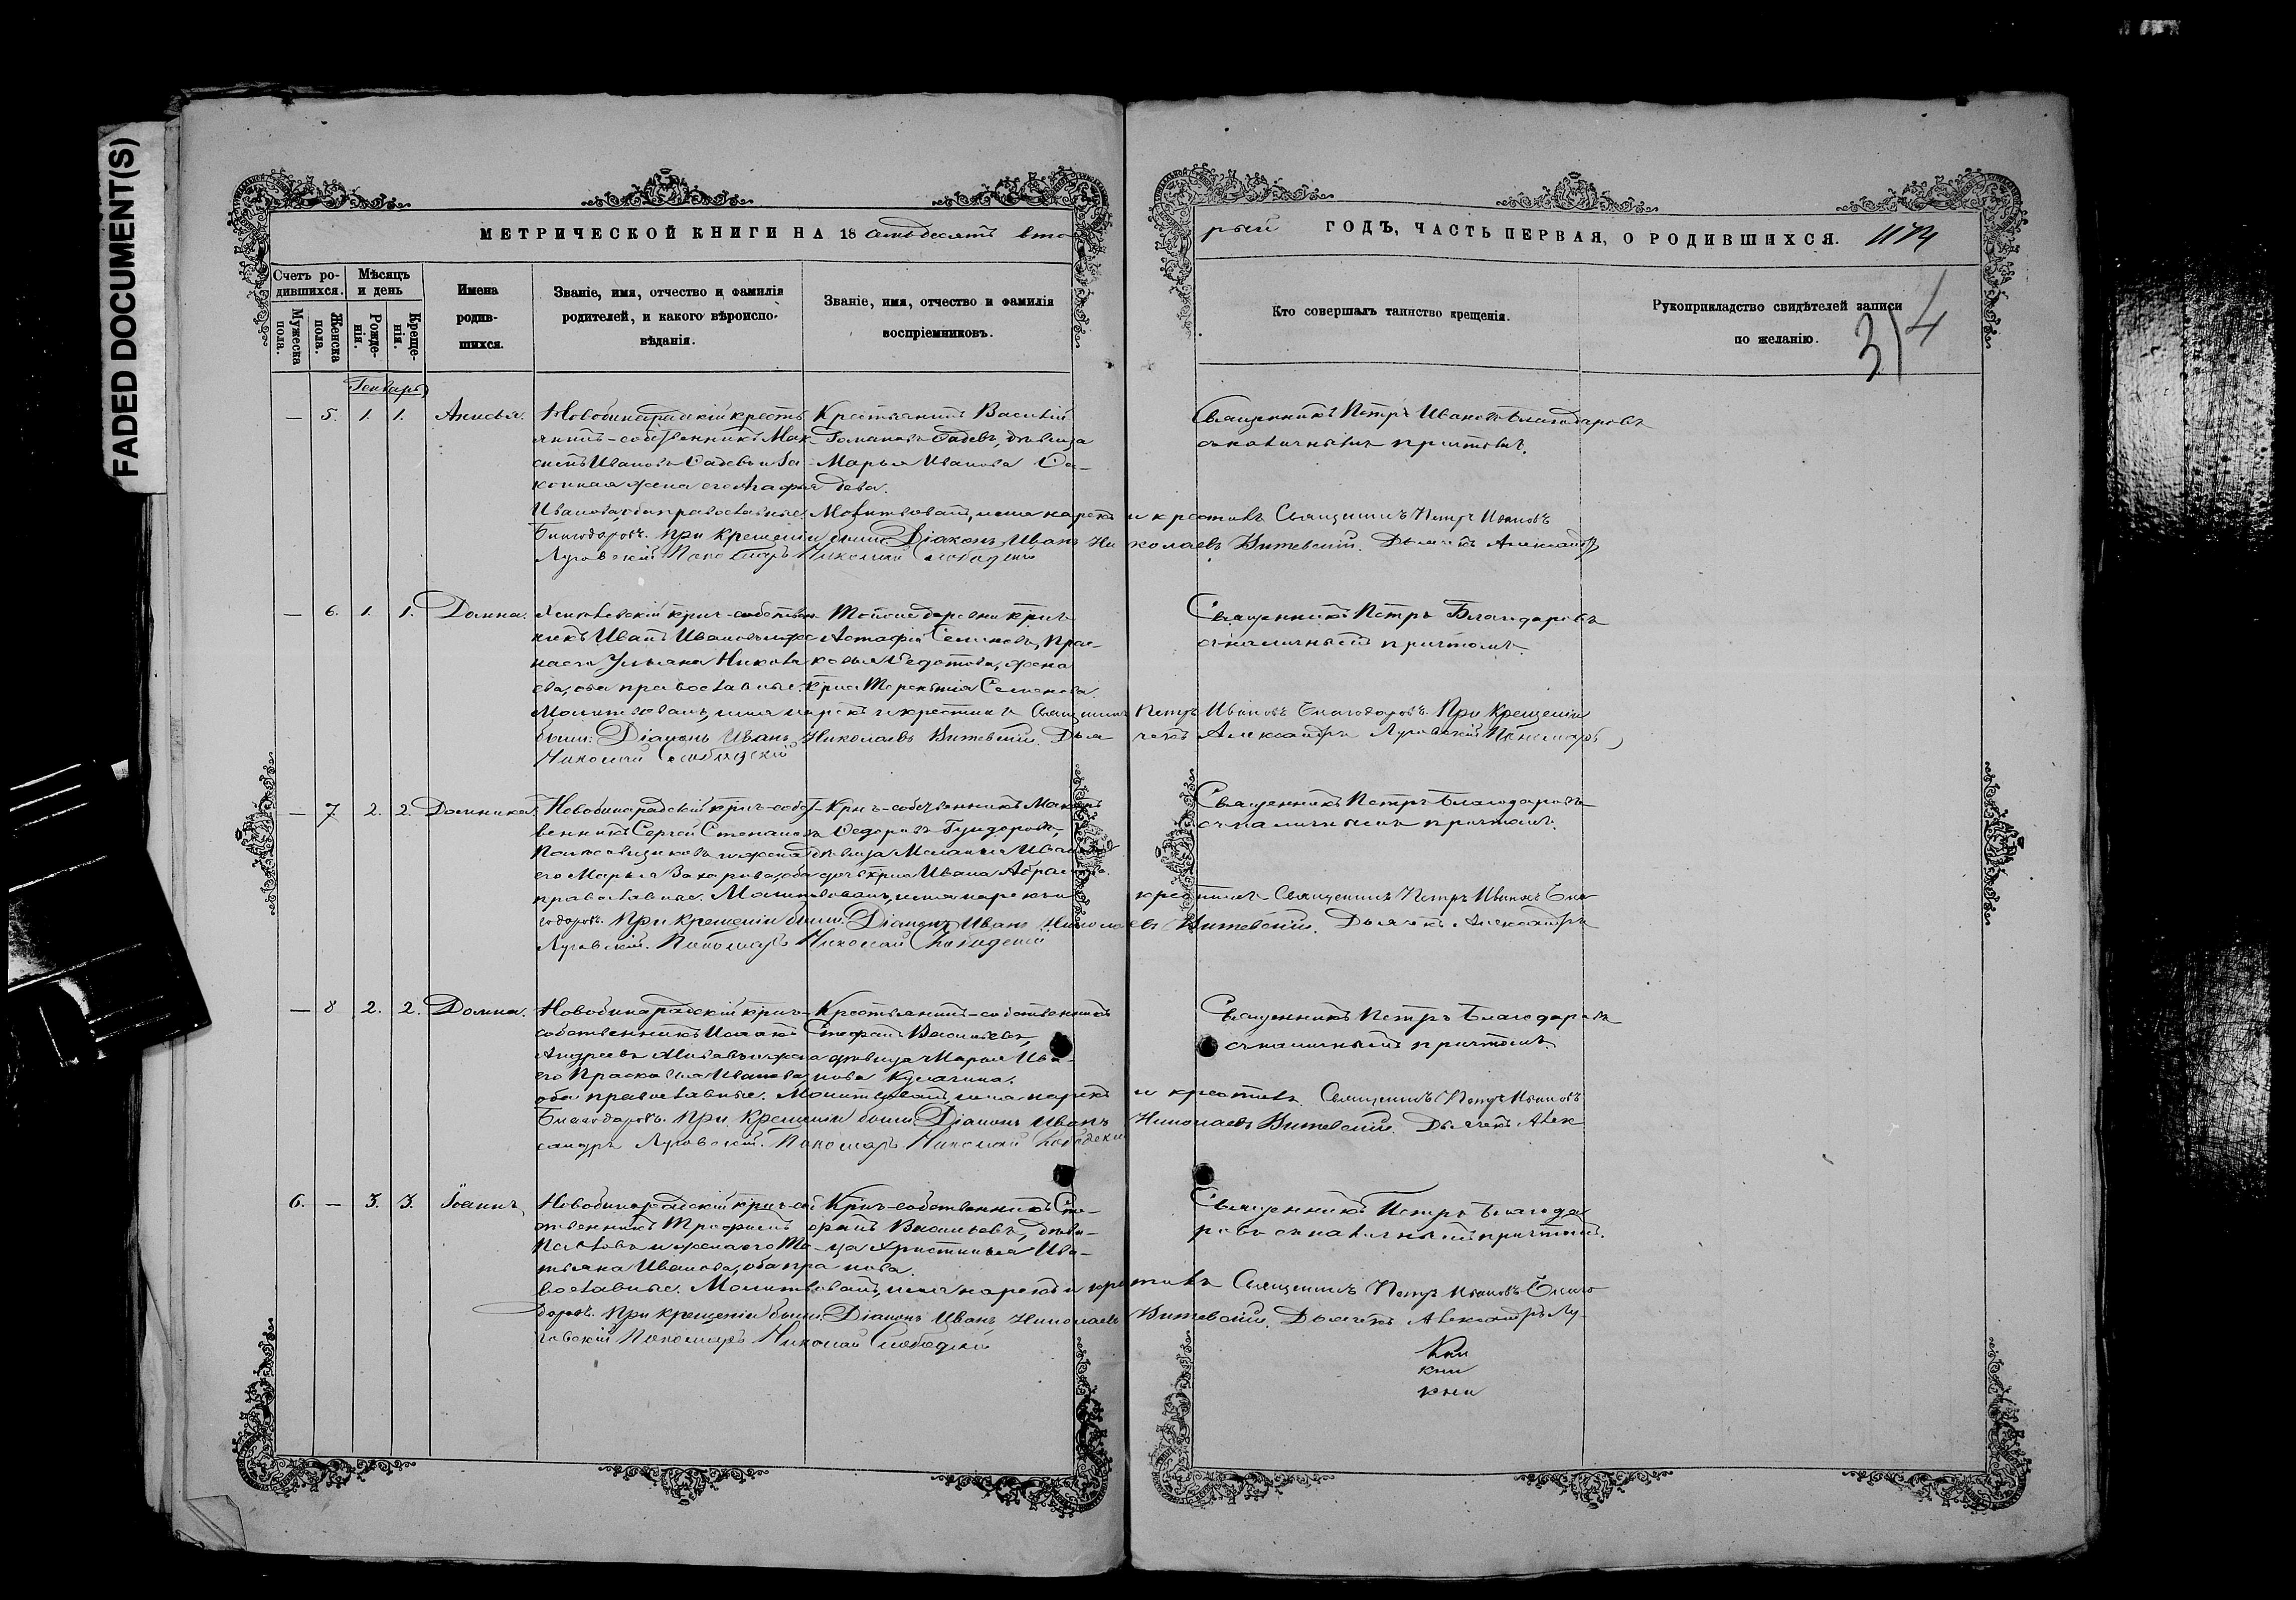 FADED DOCUMENT(S)
МЕТРИЧЕСКОЙ КНИГИ НА 18 семьдесятъ вто
рый ГОДЪ, ЧАСТЬ ПЕРВАЯ, О РОДИВШИХСЯ.
Счетъ родившихся.
Мужеска пола.
Женска пола.
Мѣсяцъ и день
Рожденія.
Крещенія.
Имена родившихся.
Званіе, имя, отчество и фамилія родителей, и какого вѣроисповѣданія.
Званіе, имя, отчество и фамилія воспріемниковъ.
Кто совершалъ таинство крещенія.
Рукоприкладство свидѣтелей записи по желанію.
314
Генварь
— 5. 1. 1. Анисья.
Новобинарадскій кресть
янинъ-собственникъ Мак
симъ Ивановъ и за
конная жена его Агафья
Ивановна, оба православные.
Крестьянинъ Василій
Романовъ дѣвица
Марья Иванова
Священникъ Петръ Ивановъ Благодаровъ
съ наличнымъ причтомъ.
Молитвовалъ, имя нарекъ и крестилъ Священникъ Петръ Ивановъ
Благодаровъ. При крещеніи были: Діаконъ Иванъ Николаевъ Витевскій. Дьячекъ Александръ
Луговскій Пономарь Николай Слободскій
— 6. 1. 1. Домна.
крест-собствен
никъ Иванъ Ивановъ
Ульяна
ева, оба православные.
Той же деревни крест
Астафій Семеновъ, Прас
ковья Федотова, жена
крест Терентія Семенова.
Священникъ Петръ Благодаровъ
съ наличнымъ причтомъ.
Молитвовалъ, имя нарекъ и крестилъ Священникъ Петръ Ивановъ Благодаровъ. При крещеніи
были: Діаконъ Иванъ Николаевъ Витевскій. Дьячекъ Александръ Луговскій Пономарь
Николай Слободскій
— 7 2. 2. Домника.
Новобинарадскій крест-собст
венникъ Сергей Степановъ
и жена
его Марья Захарова, оба
православные.
Крест-собственникъ
Федоровъ
дѣвица Меланья Ивано
дочь крест Ивана
Священникъ Петръ Благодаровъ
съ наличнымъ причтомъ.
Молитвовалъ, имя нарекъ и крестилъ Священникъ Петръ Ивановъ Бла
годаровъ. При крещеніи были: Діаконъ Иванъ Николаевъ Витевскій. Дьячекъ Александръ
Луговскій. Пономарь Николай Слободскій
— 8 2. 2. Домна.
Новобинарадскій крест-
собственникъ
Андреевъ и жена
его Прасковья Иванова,
оба православные.
Крестьянинъ-собственникъ
Стефанъ Васильевъ,
дѣвица Марья Ива-
нова Кулагина.
Священникъ Петръ Благодаровъ
съ наличнымъ причтомъ.
Молитвовалъ, имя нарекъ и крестилъ Священникъ Петръ Ивановъ
Благодаровъ. При крещеніи были: Діаконъ Иванъ Николаевъ Витевскій. Дьячекъ Алек
сандръ Луговскій. Пономарь Николай Слободскій
6. — 3. 3. Іоаннъ
Новобинарадскій крест-соб
ственникъ Трофимъ
Павловъ и жена его Та-
тьяна Иванова, оба пра
вославные.
Крест-собственникъ Сте-
фанъ Васильевъ, дѣви-
ца Христинья Ива-
нова.
Священникъ Петръ Благода
ровъ съ наличнымъ причтомъ.
Молитвовалъ, имя нарекъ и крестилъ Священникъ Петръ Ивановъ Благо
даровъ. При крещеніи были: Діаконъ Иванъ Николаевъ Витевскій. Дьячекъ Александръ Лу-
говскій Пономарь Николай Слободскій